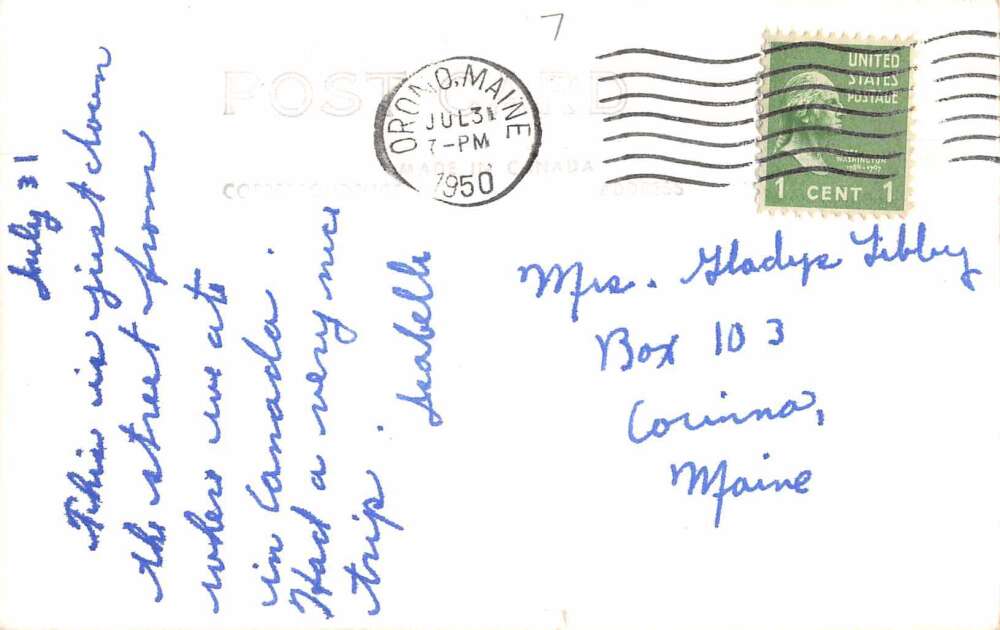 7
POST CARD
MADE IN CANADA
CORRESPONDENCE ADDRESS
ORONO, MAINE
JUL 31
7-PM
1950
UNITED
STATES
POSTAGE
WASHINGTON
1789-1797
1 CENT 1
July 31
This is just down
the street from
where we ate
in Canada.
Had a very nice
trip.
Isabelle
Mrs. Gladys Libby
Box 103
Corinna,
Maine